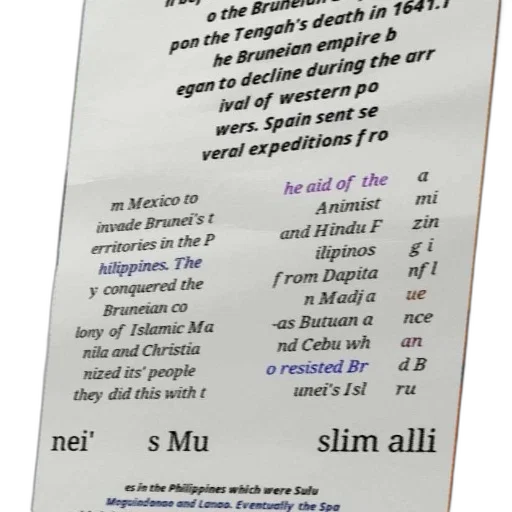 o the Bruneian
pon the Tengah's death in 1641.T
he Bruneian empire b
egan to decline during the arr
ival of western po
wers. Spain sent se
veral expeditions fro
m Mexico to
invade Brunei's t
erritories in the P
hilippines. The
y conquered the
Bruneian co
lony of Islamic Ma
nila and Christia
nized its' people
they did this with t
he aid of the
Animist
and Hindu F
ilipinos
from Dapita
n Madja
-as Butuan a
nd Cebu wh
o resisted Br
unei's Isl
a
mi
zin
g i
nfl
ue
nce
an
d B
ru
nei' s Mu slim alli
es in the Philippines which were Sulu
Maguindanao and Lanao. Eventually the Spa